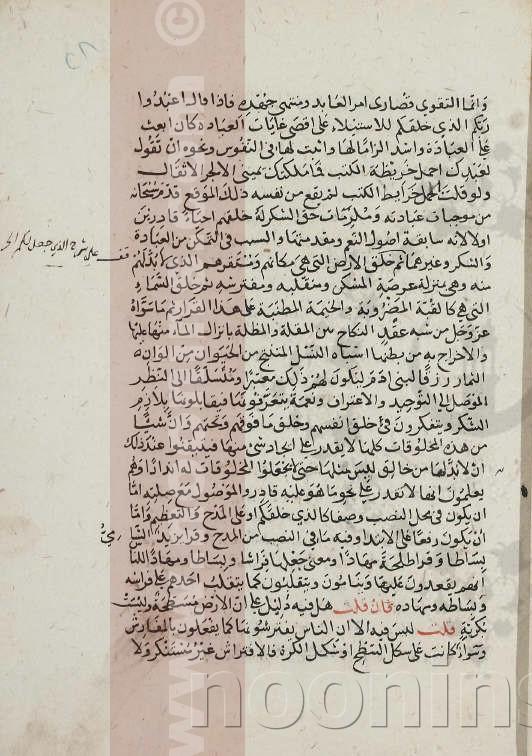 وانما التقوى قصارى امر العابد ومنتهى جهده فاذا قال اعبدوا
ربكم الذي خلقكم للاستيلاء على اقصى غايات العبادة كان ابعث
على العبادة واشد الزاما لها واثبت لها في النفوس ونحوه ان تقول
لعبدك احمل خريطة الكتب فما ملكتك يميني الا لجر الاثقال
ولو قلت لحمل خرايط الكتب لم يقع من نفسه ذلك الموقع قدم سبحانه
من موجبات عبادته وملزمات حق الشكر له خلقهم احياء قادرين
اولا لانه سابقة اصول النعم ومقدمتها والسبب في التمكن من العبادة
والشكر وغيرهما ثم خلق الارض التي هي مكانهم ومستقرهم الذي لا بد لهم
منه وهي بمنزلة عرصة المسكن ومتقلبه ومفترشه ثم خلق السماء
التي هي كالقبة المضروبة والخيمة المطنبة على هذا القرار ثم ما سواه
عز وجل من شبه عقد النكاح بين المقلة والمظلة بانزال الماء منها عليها
والاخراج به من بطنها اشباه النسل المنتج من الحيوان من الوان
الثمار رزقا لبني ادم ليكون لهم ذلك معتبرا ومتسلقا الى النظر
الموصل الى التوحيد والاعتراف ونعمة يتعرفونها فيقابلونها بلازم
الشكر ويتفكرون في خلق انفسهم وخلق ما فوقهم وتحتهم وان شيئا
من هذه المخلوقات كلها لا يقدر على ايجاد شئ منها فيتيقنوا عند ذلك
ان لا بد لها من خالق ليس كمثلها حتى لا يجعلوا المخلوقات له اندادا وهم
يعلمون انها لا تقدر على نحو ما هو عليه قادر والموصول مع صلته اما
ان يكون في محل النصب وصفا كالذي خلقكم او على المدح والتعظيم واما
ان يكون رفعا على الابتداء وفيه ما في النصب من المدح وقرا يزيد الشامي
بساطا وقرا طلحة مهادا ومعنى جعلها فراشا وبساطا ومهادا للناس
انهم يقعدون عليها وينامون ويتقلبون كما يتقلب احدهم على فراشه
وبساطه ومهاده فان قلت هل فيه دليل على ان الارض مسطحة وليست
بكرية قلت ليس فيه الا ان الناس يفترشونها كما يفعلون بالمفارش
وسواء كانت على شكل السطح او شكل الكرة فالافتراش غير مستنكر ولا
noonins